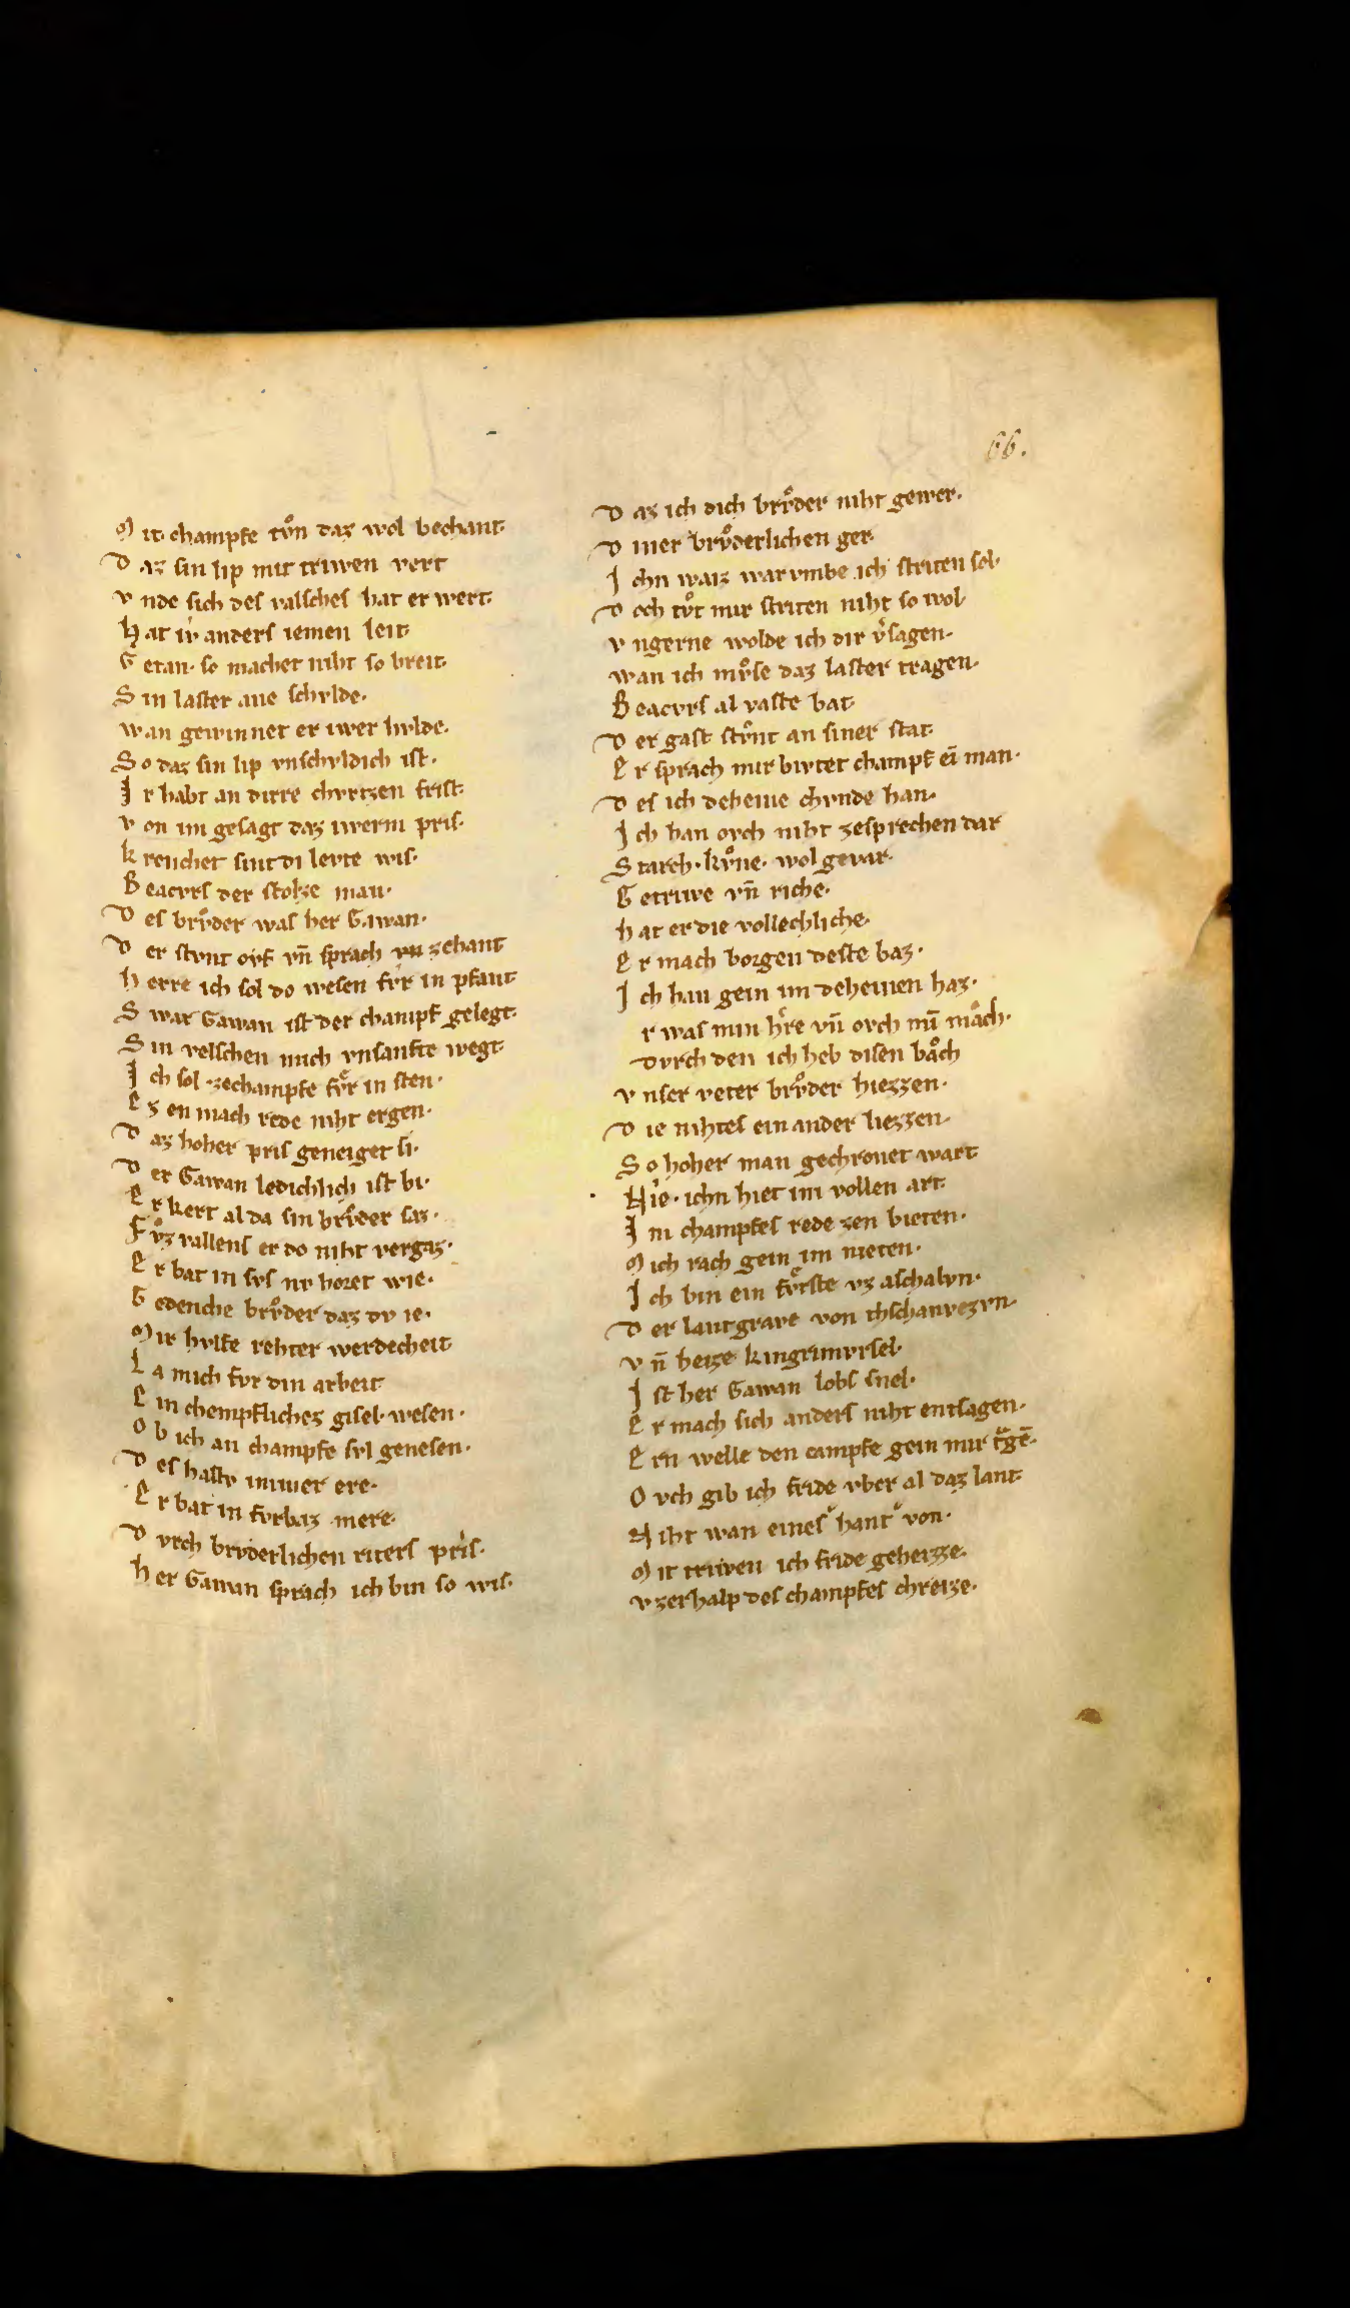 66.
M it champfe tvͦn daz wol bechant·
D az sin lip mit triwen vert
v nde sich des valsches hat er wert·
H at ir anders iemen leit·
G etan· so machet niht so breit·
S in laster ane schvlde·
w an gewinnet er iwer hvlde·
S o daz sin lip vnschvldich ist·
I r habt an dirre chvrtzen frist·
v on im gesagt daz iwerm pris·
k renchet sint di levte wis·
B eacvrs der stolze man·
D es brvͦder was her Gawan·
D er stvnt ovf vn̄ sprach zehant
h erre ich sol do wesen fvr in pfant·
S war Gawan ist der champf gelegt·
S in velschen mich vnsanfte wegt·
I ch sol zechampfe fvͤr in sten·
E z en mach rede niht ergen·
D az hoher pris geneiget si·
D er Gawan ledichlich ist bi·
E r kert al da sin brvͦder saz·
F vͦz vallens er do niht vergaz·
E r bat in svs nv horet wie·
G edenche brvͦder daz dv ie·
M ir hvlfe rehter werdecheit
L a mich fvr din arbeit
E in chempfliches gisel wesen·
O b ich an champfe svl genesen·
D es hastv immer ere·
E r bat in fvrbaz mere·
D vrch brvderlichen riters pris·
h er Gawan sprach ich bin so wis·
D az ich dich brvͦder niht gewer·
D iner brvͦderlichen ger·
I chn waiz warvmbe ich striten sol·
D och tvͦt mir striten niht so wol
v ngerne wolde ich dir v͛sagen·
w an ich mvͦse daz laster tragen·
B eacvrs al vaste bat·
D er gast stvͦnt an siner stat·
E r sprach mir bivtet champf ei̅ man·
D es ich deheine chvnde han·
I ch han ovch niht zesprechen dar
S tarch· kvͦne· wol gevar·
G etriwe vn̄ riche·
h at er die vollechliche·
E r mach borgen deste baz·
I ch han gein im deheinen haz·
r was min h͛re vn̄ ovch mi̅ maͦch·
Dvrch den ich heb disen baͦch
v nser veter brvͦder hiezzen·
D ie nihtes ein ander liezzen·
S o hoher man gechronet wart
N ie· ichn hiet im vollen art·
I m champfes rede zen bieten·
M ich rach gein im nieten·
I ch bin ein fvͤrste vz aschalvn·
D er lantgrave von thschanvezvn·
v n̄ heize kingrimvrsel·
I st her Gawan lobs snel·
E r mach sich anders niht entsagen·
E rn welle den campfe gein mir tᵃge̅·
O vch gib ich fride vber al daz lant·
N iht wan eines hant von·
M it triwen ich fride geheizze·
v zerhalp des champfes chreize·